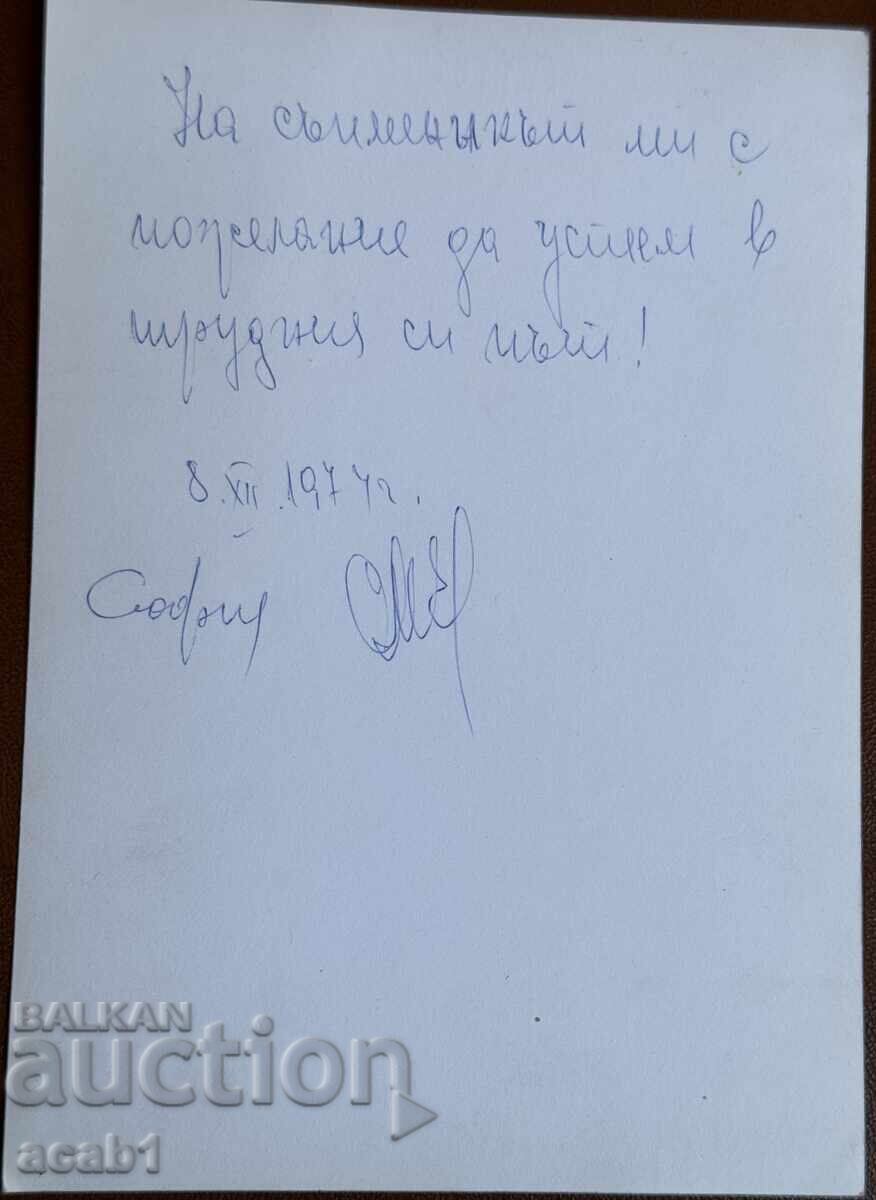 На съименыкът ми с
пожелание да успем в
трудния си път!
8.XII.1977г.
София
BALKAN
auction
acab1